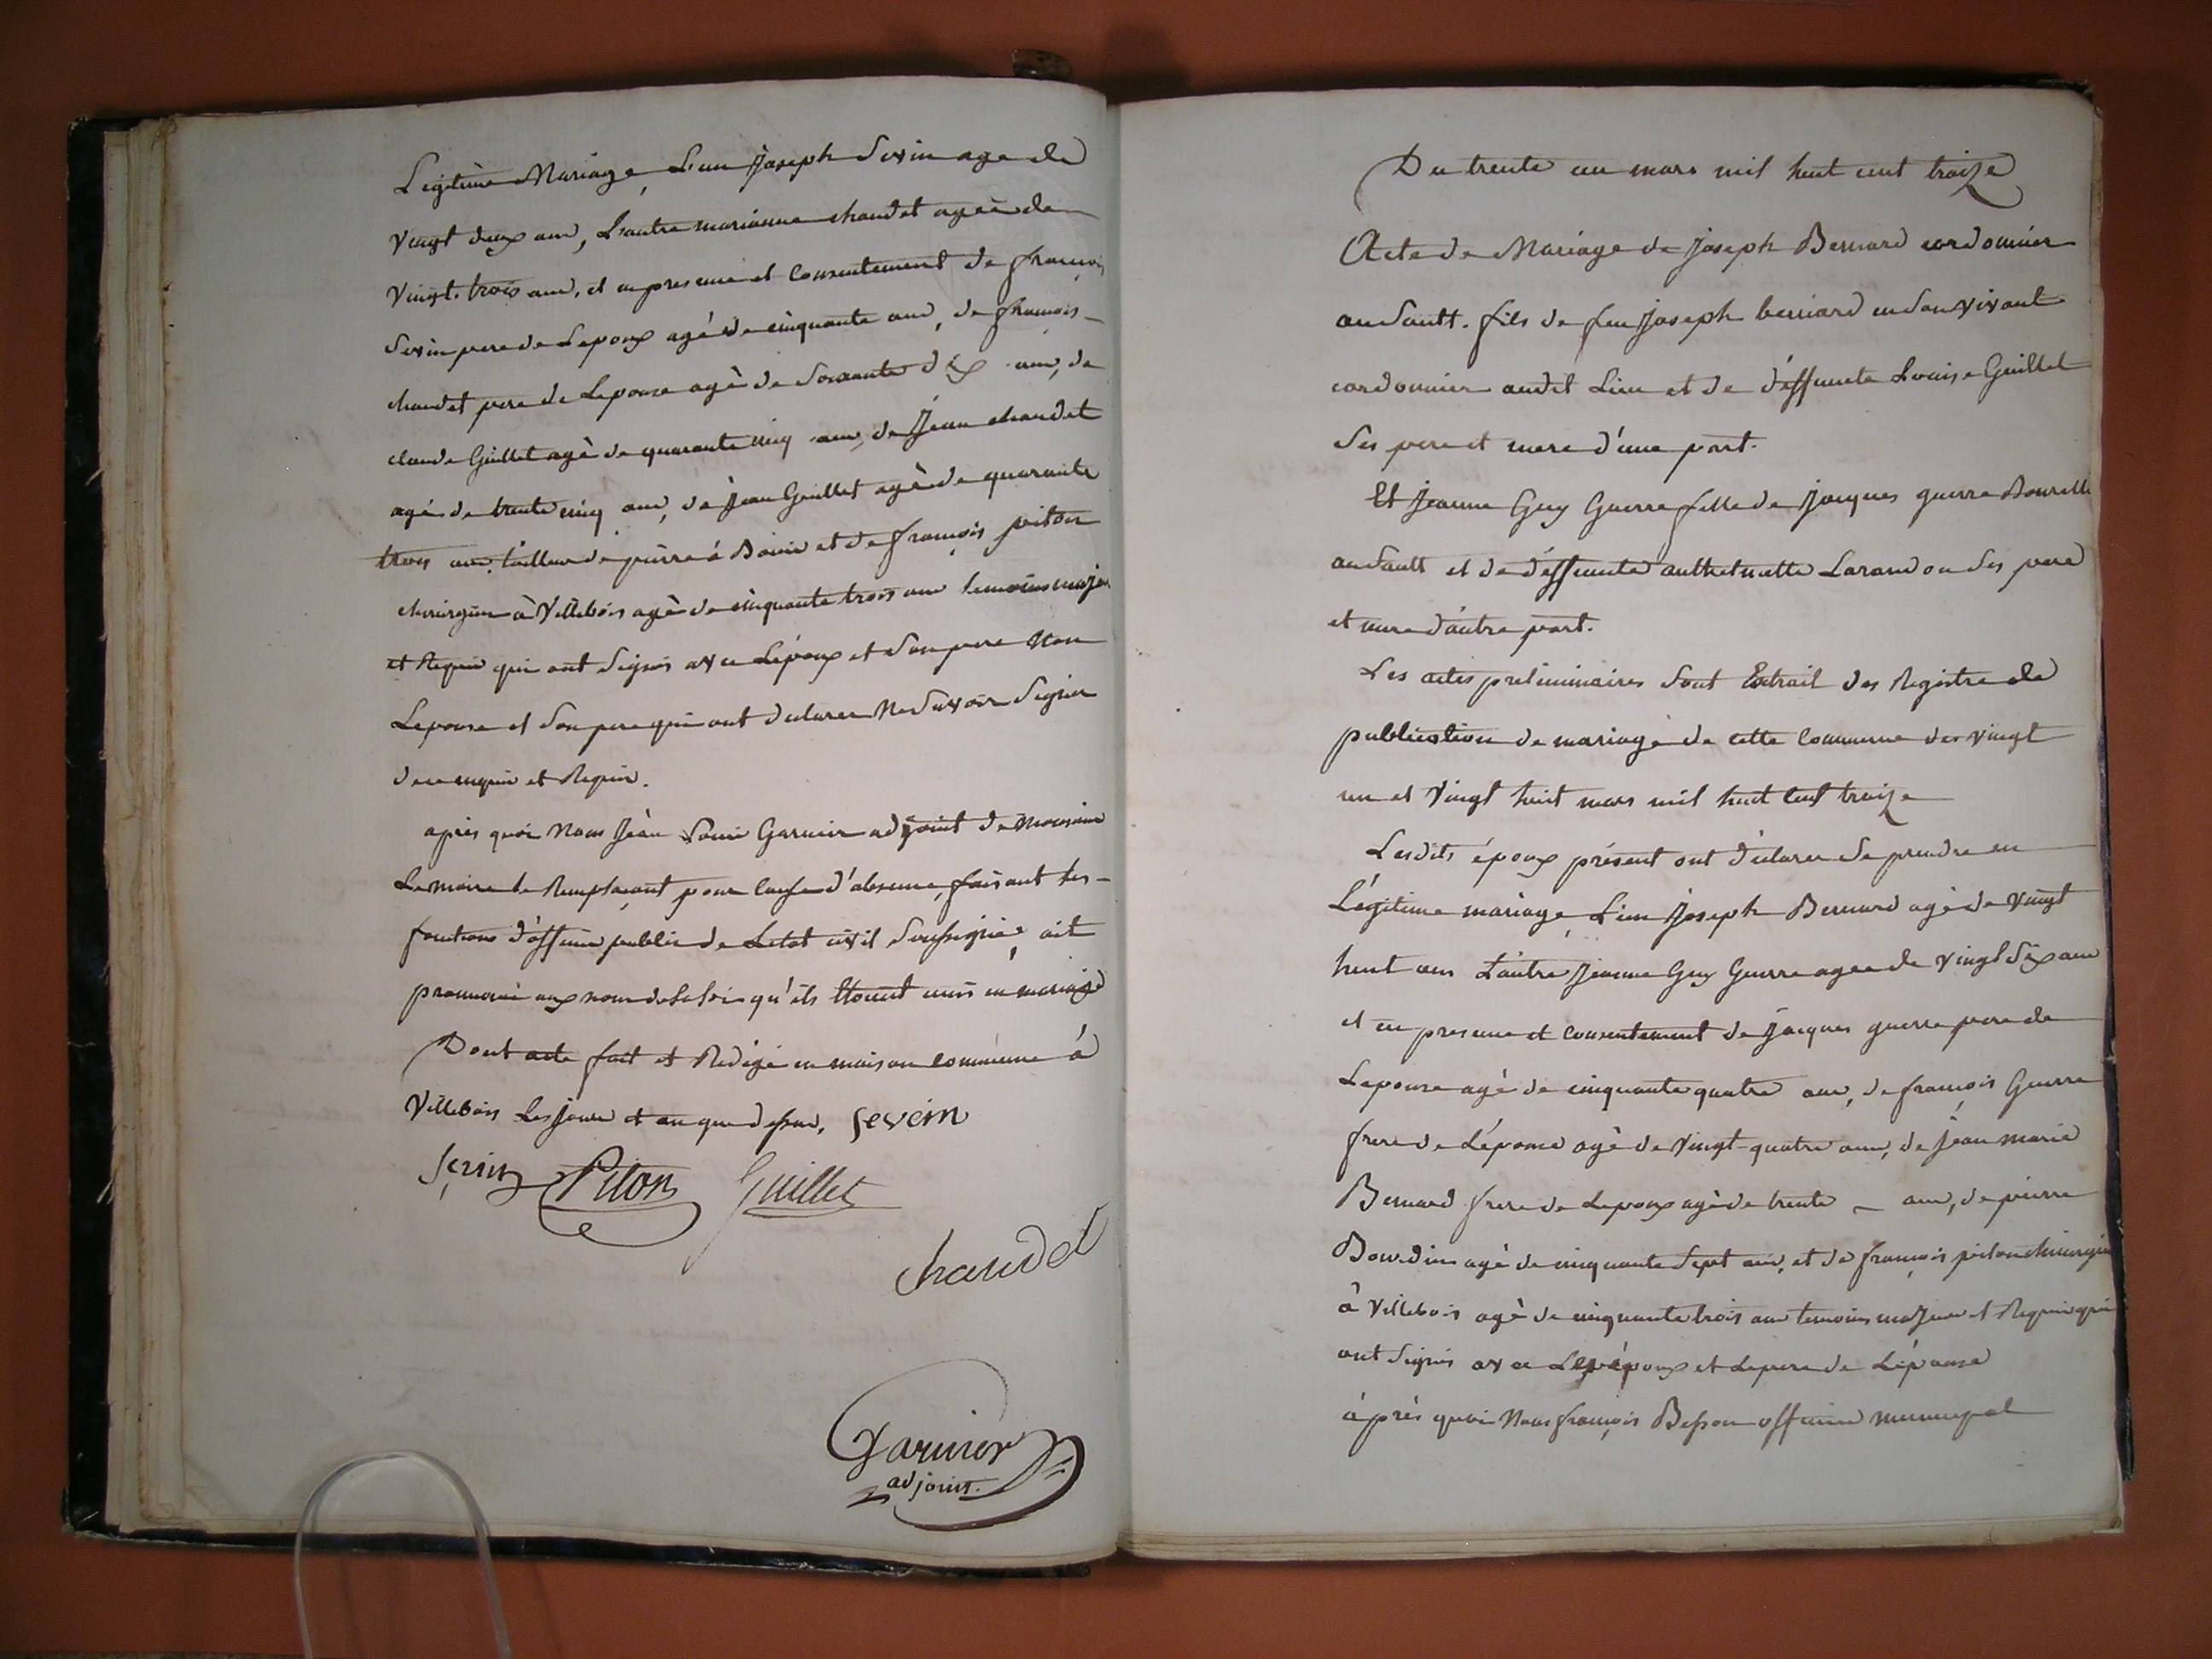 Légitime Mariage, L'un Joseph Sevin age de
vingt deux ans, L'autre marianne chaudet ageé de
vingt-trois ans, et en presence et consentement de francois
Sevin pere de Lepoux agé de cinquante ans, de francois
chaudet pere de Lepouse agé de Soixante dix ans, de
claude Guillet agé de quarante cinq ans, de Jean chaudet
agé de trente cinq ans, de Jean Guillet agé de quarante
trois ans, tailleur de pierre à Bouis et de francois piton
chirurgien à Villebois agé de cinquante trois ans temoins majeu
et Requis qui ont Signés avec Lépoux et Son pere Non
Lepouse et Son pere qui ont declarer Ne Savoir Signer
de ce enquis et Requis.
après quoi Nous Jean Garnier adjoint de Monsieur
Le maire le Remplaçant pour cause d'absence, faisant les
fonctions d'officier public de Letat civil Soussigné, ait
prononcé aux nom de la loi qu'ils Etoient unis en mariage
Dont acte fait et Rédigé en maison commune à
Villebois Les jour et an que dessus. Sevein
Sevin Piton Guillet
chaudet
Garnier
adjoint.
Du trente un mars mil huit cent traize
Acte de Mariage de Joseph Bernard cordonnier
au Sault. fils de feu Joseph bernard en Son vivant
cordonnier audit Lieu et de déffuncte Louise Guillet
Ses pere et mere d'une part.
Et Jeanne Guy Guerre fille de Jacques guerre
au Sault et de déffuncte Larandon Ses pere
et mere d'autre part.
Les actes preliminaires Sont Extrait des Registre de
publication de mariage de cette commune des vingt
un et vingt huit mars mil huit cent traize
Lesdits époux présent ont déclarer Se prendre en
Légitime mariage, L'un Joseph Bernard agé de vingt
huit ans L'autre Jeanne Guy Guerre agee de vingt Six ans
et en presence et consentement de Jacques guerre pere de
Lepouse agé de cinquante quatre ans, de francois Guerre
frere de Lépouse agé de vingt-quatre ans, de jean marie
Bernard frere de Lepoux agé de trente – ans, de pierre
Bourdin agé de cinquante Sept ans, et de francois piton chirurgien
à Villebois agé de cinquante trois ans temoins majeur et Requis qui
ont Signés avec Les époux et Le pere de Lépouse
après quoi Nous francois Besson officier municipal